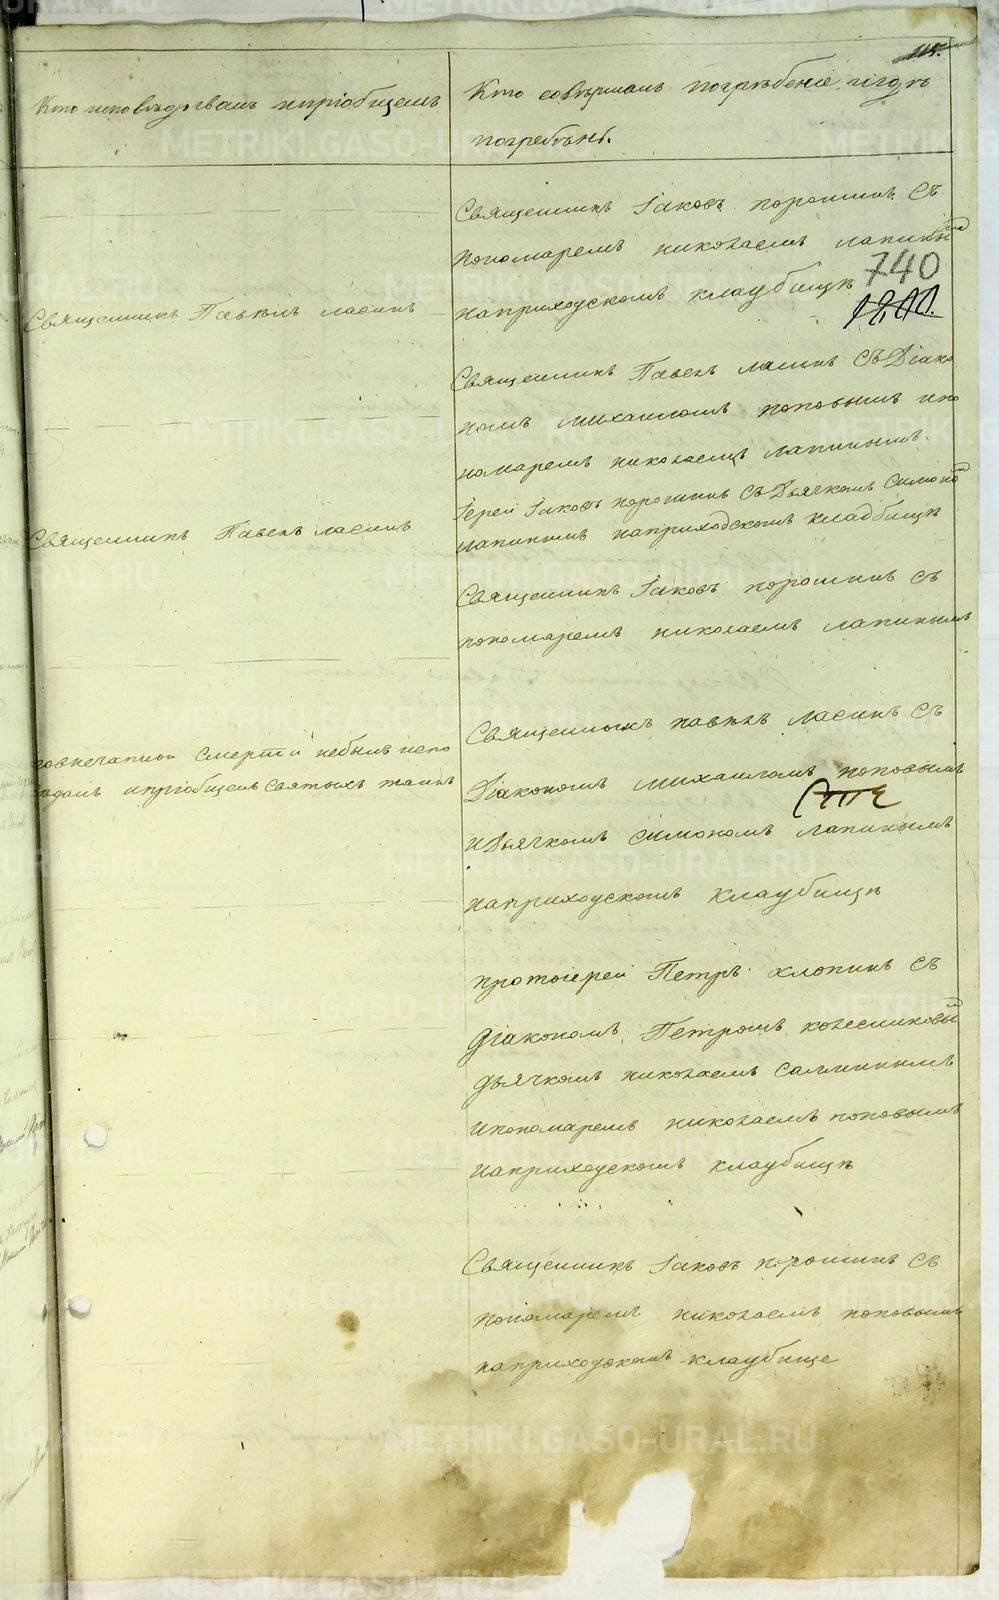 Кто исповѣдывалъ и пріобщалъ
Кто совершалъ погрѣбеніе и гдѣ
погребѣны.
Священникъ Іаковъ порошинъ съ
пономаремъ николаемъ лапинымъ
740
на приходскомъ клаубищѣ
Священникъ Павелъ ласинъ
Священникъ Павелъ ласинъ съ Діако
номъ михаиломъ поповымъ и по
номаремъ николаемъ лапинымъ.
Іерей Іаковъ порошинъ съ Дьячкомъ симоном
лапинымъ на приходскомъ кладбищѣ
Священникъ Павелъ ласинъ
Священникъ Іаковъ порошинъ съ
пономаремъ николаемъ лапинымъ
Священникъ павелъ ласинъ съ
внезапной смерти небылъ испо
и пріобщенъ святыхъ таинъ
Діакономъ михаиломъ поповымъ
и Дьячкомъ симономъ лапинымъ
на приходскомъ клаубищѣ
протоіерей Петръ хлопинъ съ
діакономъ Петромъ колесниковым
дьячкомъ николаемъ
и пономаремъ николаемъ поповымъ
на приходскомъ клаубищѣ
Священникъ Іаковъ порошинъ съ
пономаремъ николаемъ поповымъ
на приходскомъ клаубище
METRIKI.GASO-URAL.RU